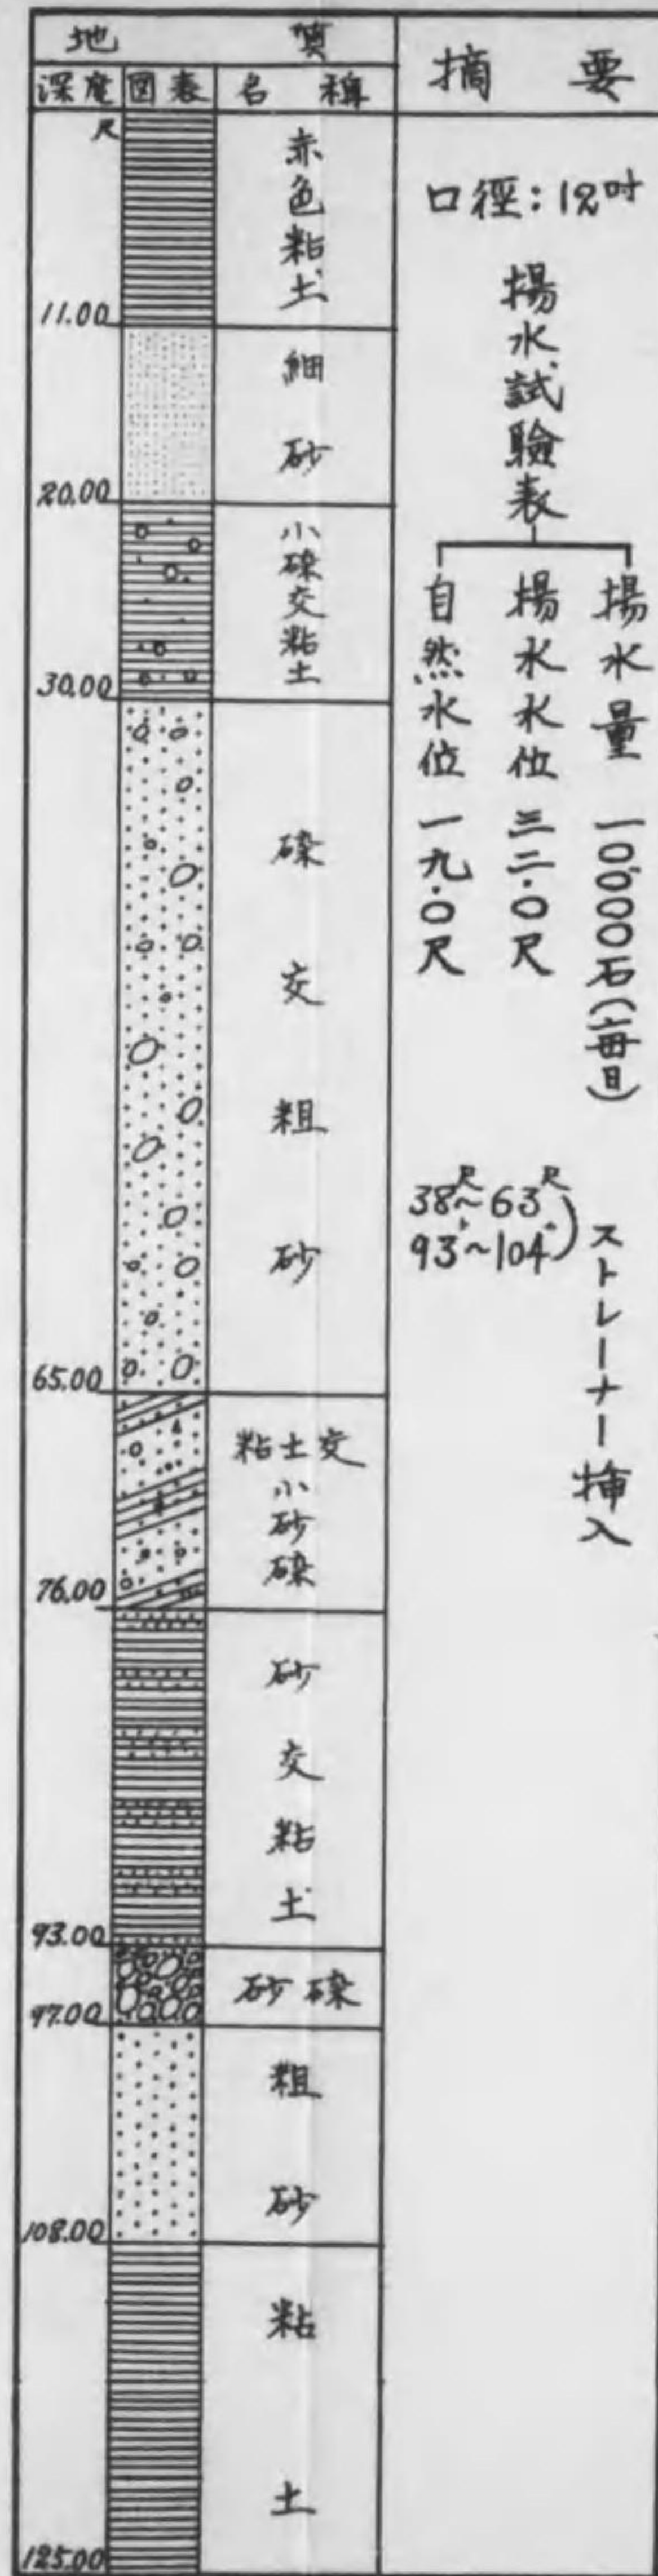 地質
深度 図表 名稱
摘要
尺
赤色粘土
11.00
細砂
20.00
小磙交粘土
30.00
磙交粗砂
65.00
粘土交
小砂磙
76.00
砂交粘土
93.00
砂磙
97.00
粗砂
108.00
粘土
125.00
口徑:12吋
揚水試驗表
揚水量 一〇、〇〇〇石(毎日)
揚水水位 三二.〇尺
自然水位 一九.〇尺
38尺~63尺
93〃~104〃)
ストレーナー挿入